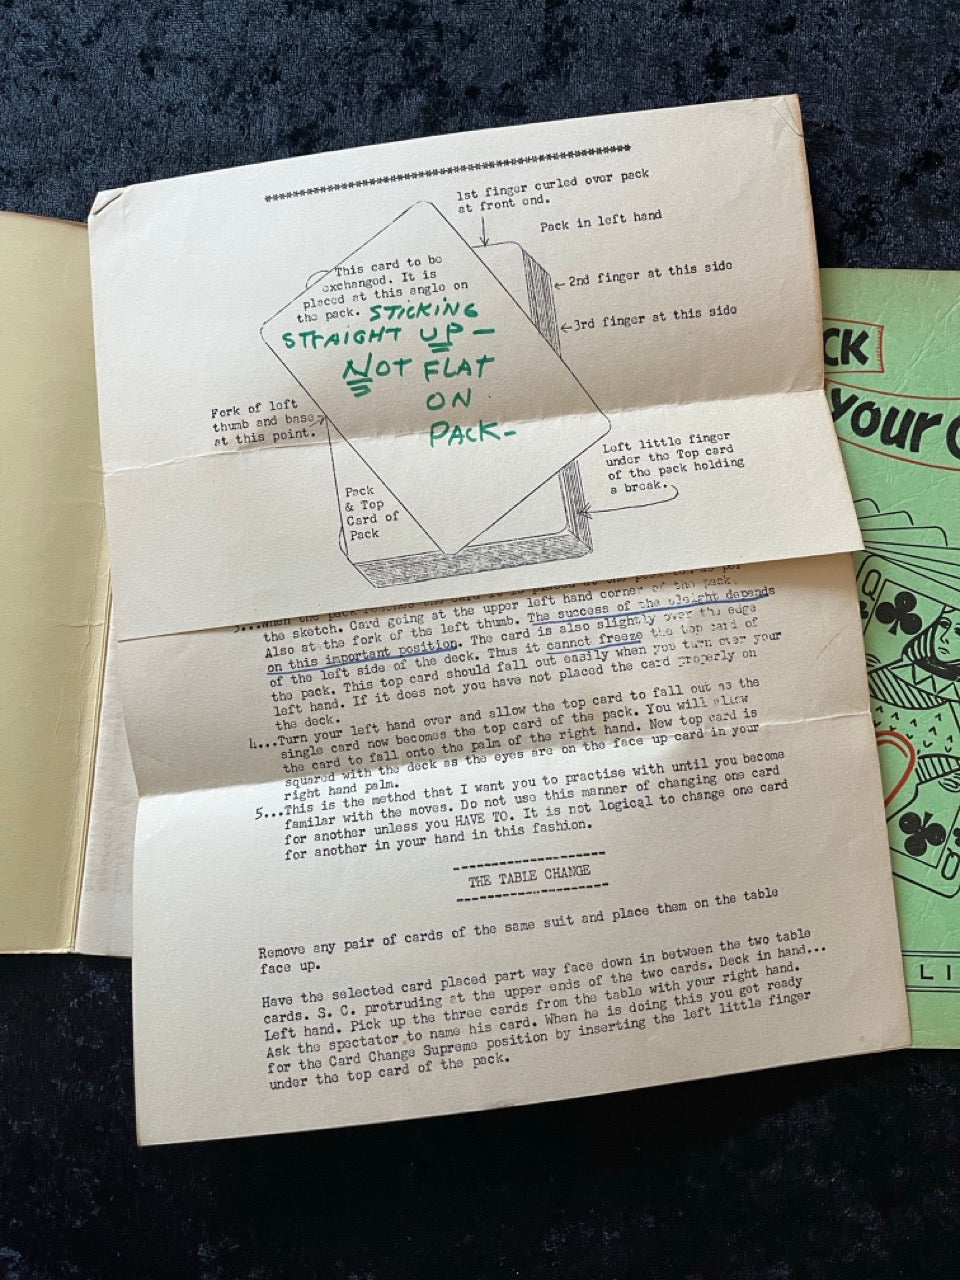 ****************************************************
1st finger curled over pack
at front end.
Pack in left hand
This card to be
exchanged. It is
placed at this angle on
the pack. STICKING
STRAIGHT UP —
NOT FLAT
ON
PACK-
2nd finger at this side
3rd finger at this side
Fork of left
thumb and base
at this point.
Left little finger
under the Top card
of the pack holding
a break.
Pack
& Top
Card of
Pack
the sketch. Card going at the upper left hand corner of the pack.
Also at the fork of the left thumb. The success of the sleight depends
on this important position. The card is also slightly over the edge
of the left side of the deck. Thus it cannot freeze the top card of
the pack. This top card should fall out easily when you turn over your
left hand. If it does not you have not placed the card properly on
the deck.
4...Turn your left hand over and allow the top card to fall out as the
single card now becomes the top card of the pack. You will allow
the card to fall onto the palm of the right hand. New top card is
squared with the deck as the eyes are on the face up card in your
right hand palm.
5...This is the method that I want you to practise with until you become
familar with the moves. Do not use this manner of changing one card
for another unless you HAVE TO. It is not logical to change one card
for another in your hand in this fashion.
THE TABLE CHANGE
Remove any pair of cards of the same suit and place them on the table
face up.
Have the selected card placed part way face down in between the two table
cards. S. C. protruding at the upper ends of the two cards. Deck in hand...
Left hand. Pick up the three cards from the table with your right hand.
Ask the spectator to name his card. When he is doing this you get ready
for the Card Change Supreme position by inserting the left little finger
under the top card of the pack.
CK
your
Q
LI